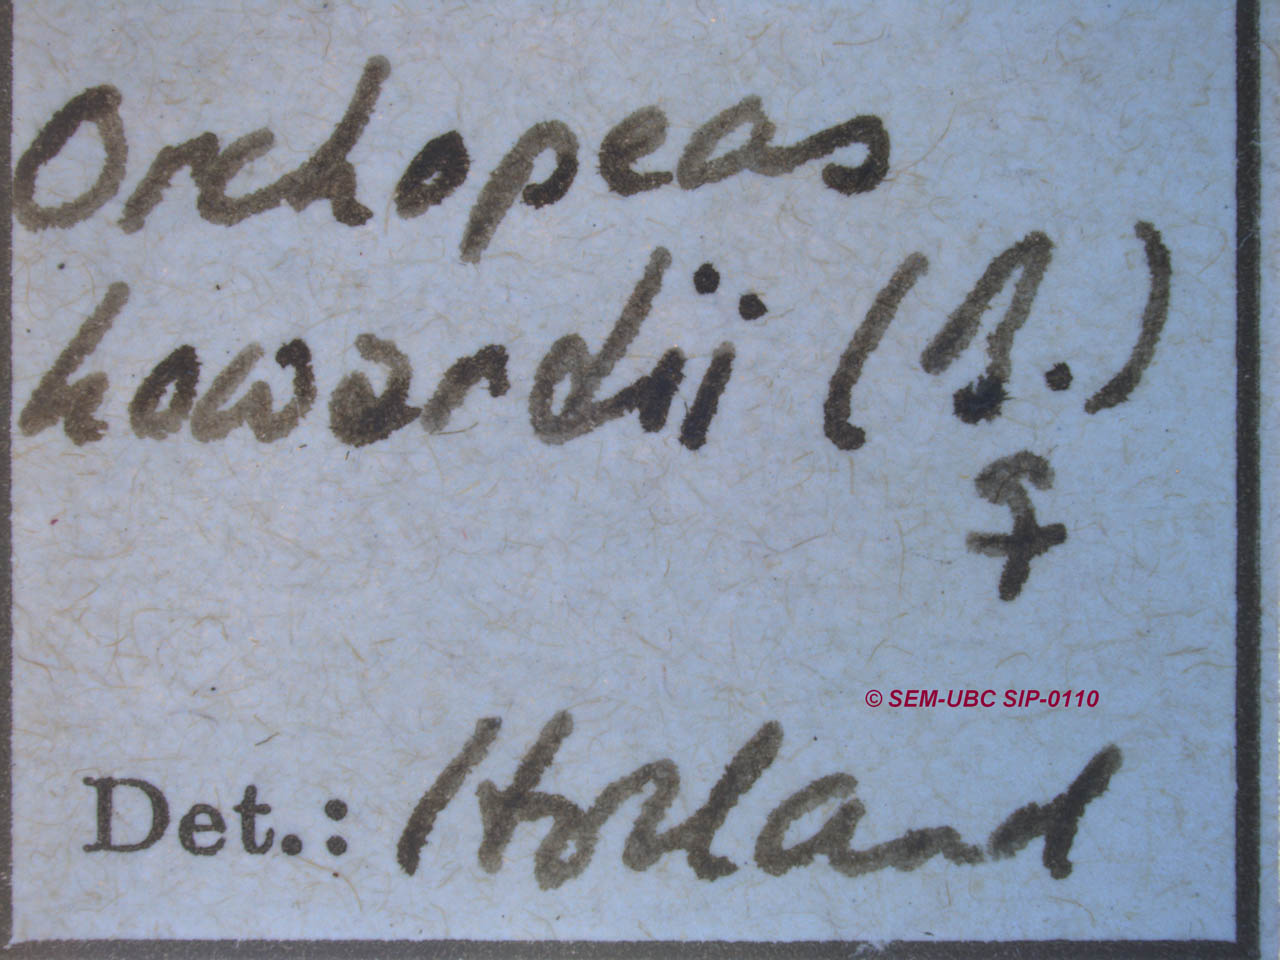 Orchopeas
howardii (B.)
♀
© SEM-UBC SIP-0110
Det.: Holland